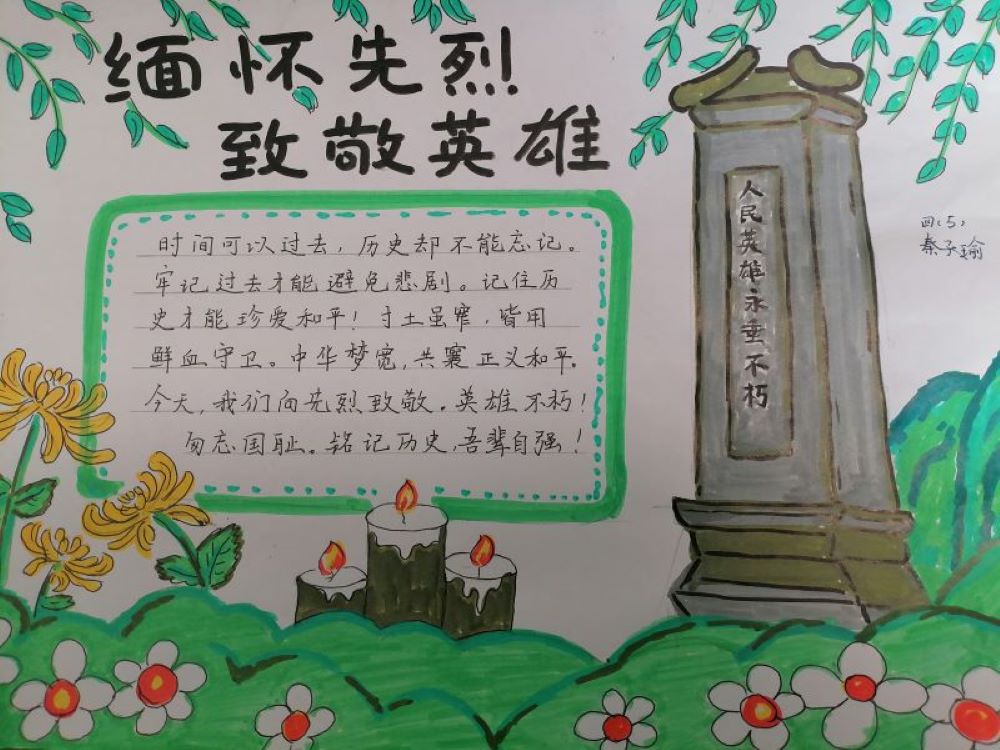 缅怀先烈
致敬英雄
时间可以过去，历史却不能忘记。
牢记过去才能避免悲剧。记住历
史才能珍爱和平！寸土虽窄，皆用
鲜血守卫。中华梦宽，共襄正义和平.
今天，我们向先烈致敬。英雄不朽！
勿忘国耻。铭记历史，吾辈自强！
人民英雄永垂不朽
四（5）
秦子瑜